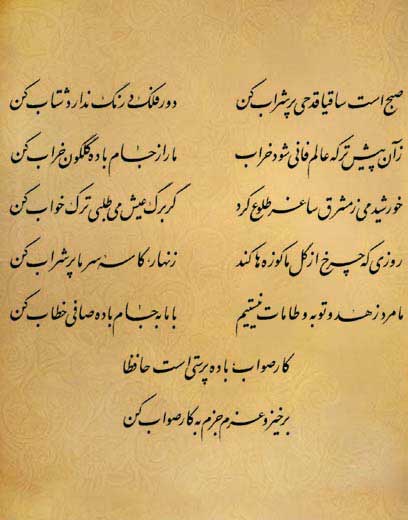 صبح است ساقیا قدحی پر شراب کن    دور فلک درنگ ندارد شتاب کن
زآن پیش تر که عالم فانی شود خراب    ما را ز جام باده گلگون خراب کن
خورشید می ز مشرق ساغر طلوع کرد    گر برگ عیش می طلبی ترک خواب کن
روزی که چرخ از گل ما کوزه ها کند    زنهار کاسه سر ما پر شراب کن
ما مرد زهد و توبه و طامات نیستیم    با ما به جام باده صافی خطاب کن
کار صواب باده پرستی است حافظا
برخیز و عزم جزم به کار صواب کن